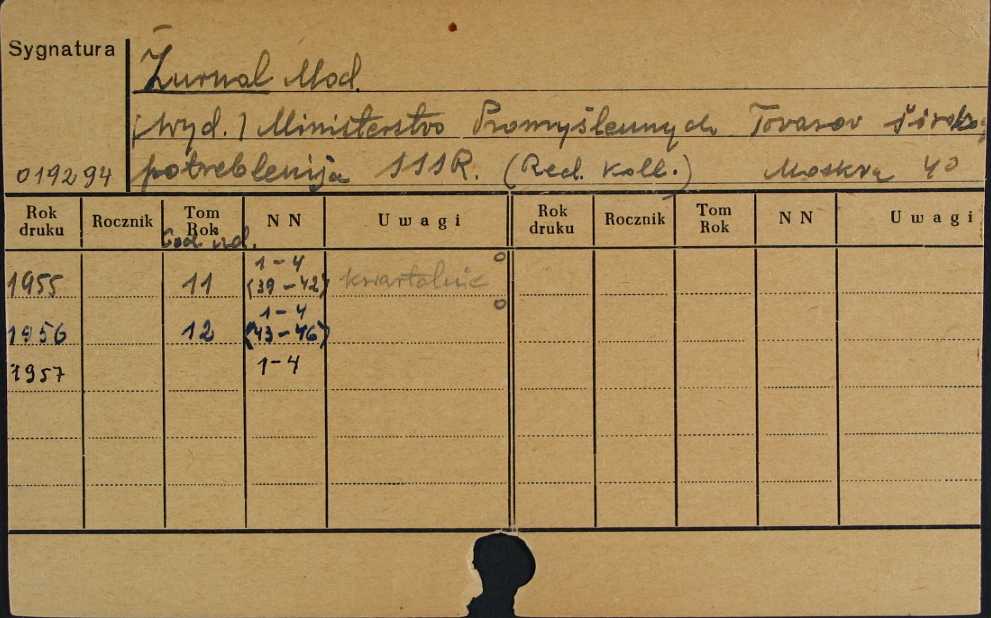 Sygnatura
Žurnal Mod.
[Wyd.] Ministerstvo Promyšlennych Tovarov širokog
019294 potreblenija SSSR. (Red. koll.) Moskva 40
Rok druku Rocznik Tom Rok NN Uwagi Rok druku Rocznik Tom Rok NN Uwagi
God izd.
1955 11 1-4 (39-42) kwartalnic
1956 12 1-4 (43-46)
1957 1-4